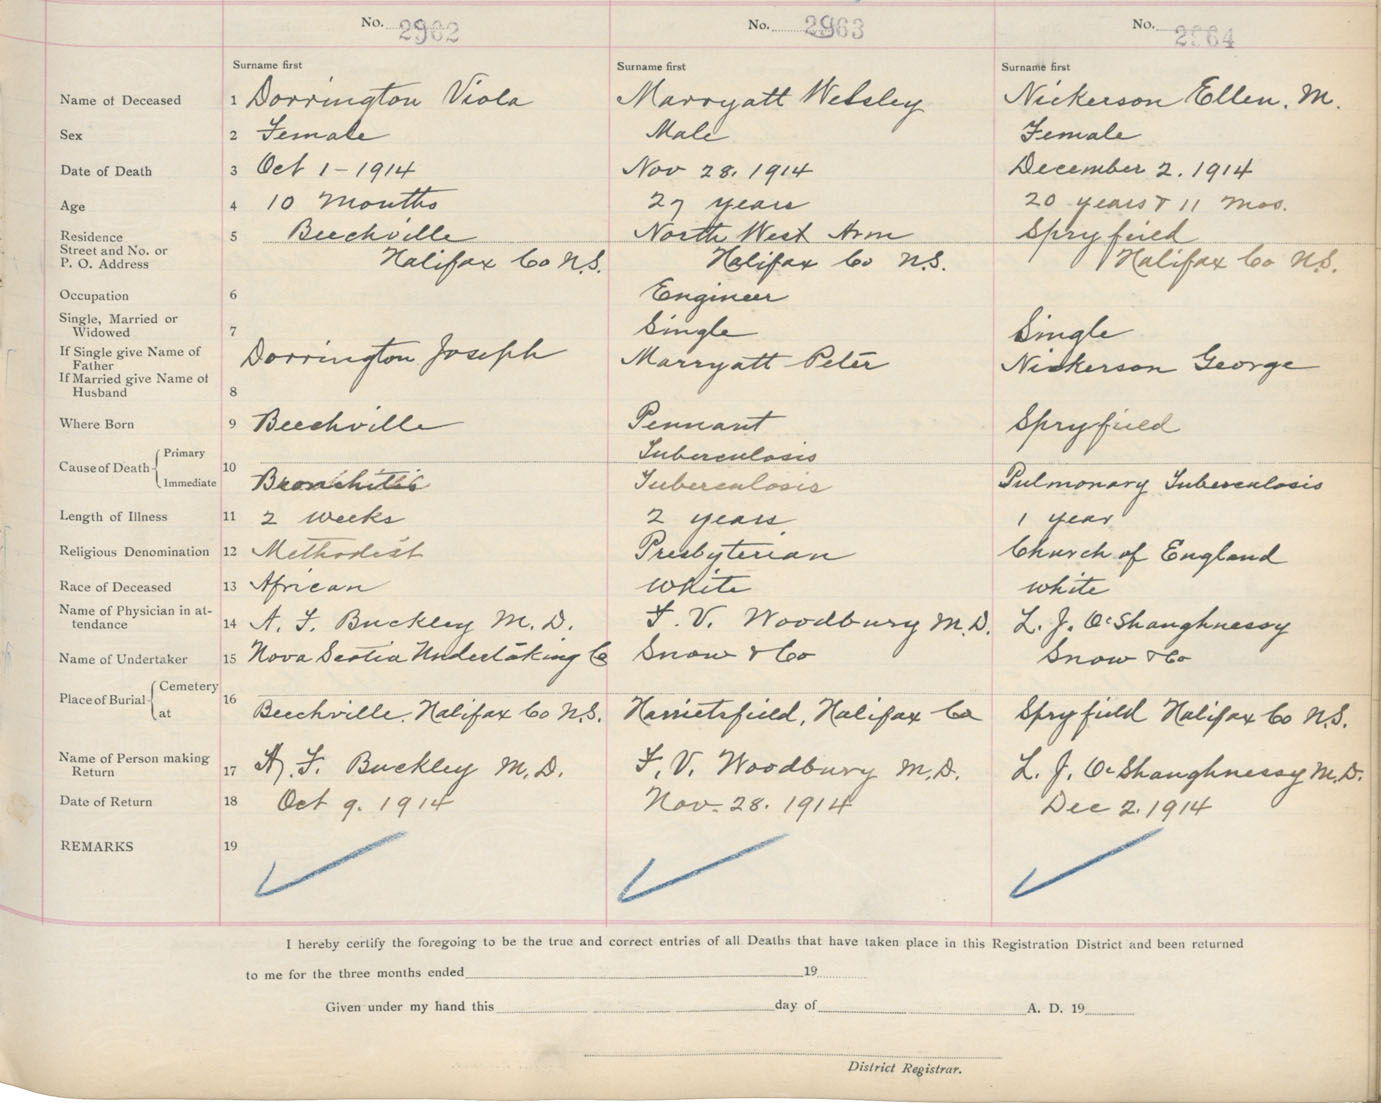 No. 2962 No. 2963 No. 2964
Surname first Surname first Surname first
Name of Deceased 1 Dorrington Viola Marryatt Welsley Nickerson Ellen. M.
Sex 2 Female Male Female
Date of Death 3 Oct 1 - 1914 Nov 28. 1914 December 2. 1914
Age 4 10 months 27 years 20 years & 11 mos.
Residence 5 Beechville North West Arm Spryfield
Street and No. or
P. O. Address Halifax Co N.S. Halifax Co N.S. Halifax Co N.S.
Occupation 6 Engineer
Single, Married or
Widowed 7 Single Single
If Single give Name of
Father Dorrington Joseph Marryatt Peter Nickerson George
If Married give Name of
Husband 8
Where Born 9 Beechville Pennant Spryfield
Cause of Death Primary 10 Tuberculosis
Immediate Bronchitis Tuberculosis Pulmonary Tuberculosis
Length of Illness 11 2 weeks 2 years 1 year
Religious Denomination 12 Methodist Presbyterian Church of England
Race of Deceased 13 African white white
Name of Physician in at-
tendance 14 A. F. Buckley M. D. F. V. Woodbury M.D. L. J. O'Shaughnessy
Name of Undertaker 15 Nova Scotia Undertaking Co Snow & Co Snow & Co
Place of Burial Cemetery 16
at Beechville. Halifax Co N.S. Harrietsfield, Halifax Co Spryfield Halifax Co N.S.
Name of Person making
Return 17 A. F. Buckley M. D. F. V. Woodbury M.D. L. J. O'Shaughnessy M.D.
Date of Return 18 Oct 9. 1914 Nov. 28. 1914 Dec 2. 1914
REMARKS 19
I hereby certify the foregoing to be the true and correct entries of all Deaths that have taken place in this Registration District and been returned
to me for the three months ended 19
Given under my hand this day of A. D. 19
District Registrar.